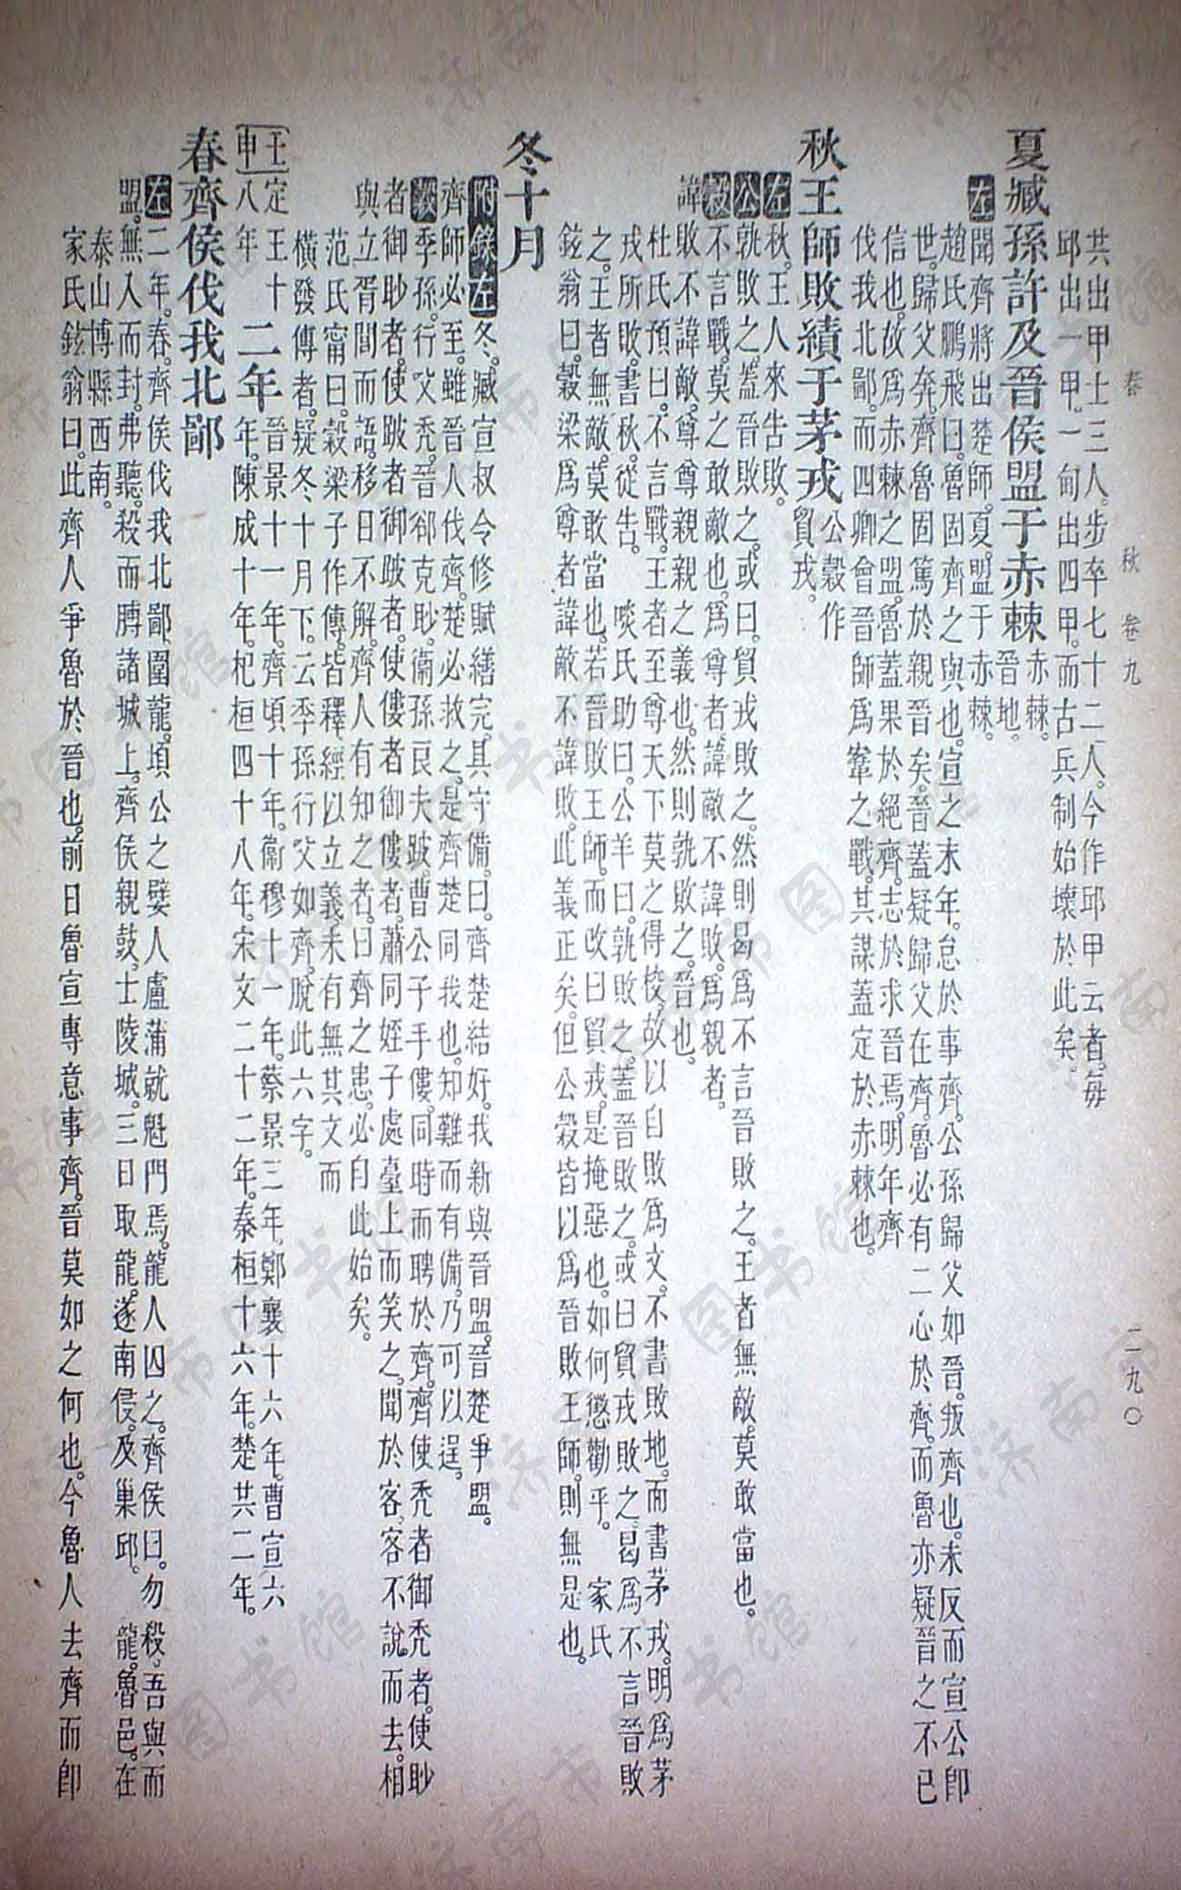 春 秋 卷九 二九〇
共出甲士三人。步卒七十二人。今作邱甲云者。每
邱出一甲。一甸出四甲。而古兵制始壞於此矣。
夏臧孫許及晉侯盟于赤棘
赤棘。
晉地。
左聞齊將出楚師。夏。盟于赤棘。
趙氏鵬飛曰。魯固齊之與也。宣之末年。怠於事齊。公孫歸父如晉。叛齊也。未反而宣公卽
世。歸父奔。齊魯固篤於親晉矣。晉蓋疑歸父在齊。魯必有二心於齊。而魯亦疑晉之不已
信也。故爲赤棘之盟。魯蓋果於絕齊。志於求晉焉。明年齊
伐我北鄙。而四卿會晉師爲鞌之戰。其謀蓋定於赤棘也。
秋王師敗績于茅戎
公穀作
貿戎。
左秋。王人來告敗。
公孰敗之。蓋晉敗之。或曰。貿戎敗之。然則曷爲不言晉敗之。王者無敵。莫敢當也。
穀不言戰。莫之敢敵也。爲尊者。諱敵不諱敗。爲親者。
諱敗不諱敵。尊尊親親之義也。然則孰敗之。晉也。
杜氏預曰。不言戰。王者至尊天下莫之得校。故以自敗爲文。不書敗地。而書茅戎。明爲茅
戎所敗。書秋。從告。 啖氏助曰。公羊曰。孰敗之。蓋晉敗之。或曰貿戎敗之。曷爲不言晉敗
之。王者無敵。莫敢當也。若晉敗王師。而改曰貿戎。是掩惡也。如何懲勸乎。 家氏
鉉翁曰。穀梁爲尊者諱敵不諱敗。此義正矣。但公穀皆以爲晉敗王師。則無是也。
冬十月
附錄左冬。臧宣叔令修賦繕完。其守備。曰。齊楚結好。我新與晉盟。晉楚爭盟。
齊師必至。雖晉人伐齊。楚必救之。是齊楚同我也。知難而有備。乃可以逞。
穀季孫。行父禿。晉郤克眇。衞孫良夫跛。曹公子手僂。同時而聘於齊。齊使禿者御禿者。使眇
者御眇者。使跛者御跛者。使僂者御僂者。蕭同姪子處臺上而笑之。聞於客。客不說而去。相
與立胥閭而語。移日不解。齊人有知之者。曰齊之患。必自此始矣。
范氏甯曰。穀梁子作傳。皆釋經以立義。未有無其文而
橫發傳者。疑冬十月下。云季孫行父如齊。脫此六字。
壬申
定王十八年
二年
晉景十一年。齊頃十年。衞穆十一年。蔡景三年。鄭襄十六年。曹宣六
年。陳成十年。杞桓四十八年。宋文二十二年。秦桓十六年。楚共二年。
春齊侯伐我北鄙
左二年。春。齊侯伐我北鄙。圍龍。頃公之嬖人盧蒲就魁門焉。龍人囚之。齊侯曰。勿殺。吾與而
盟。無人而封。弗聽。殺而膊諸城上。齊侯親鼓。士陵城。三日取龍。遂南侵。及巢邱。 龍。魯邑。在
泰山博縣西南。
家氏鉉翁曰。此齊人爭魯於晉也。前日魯宣專意事齊。晉莫如之何也。今魯人去齊而卽